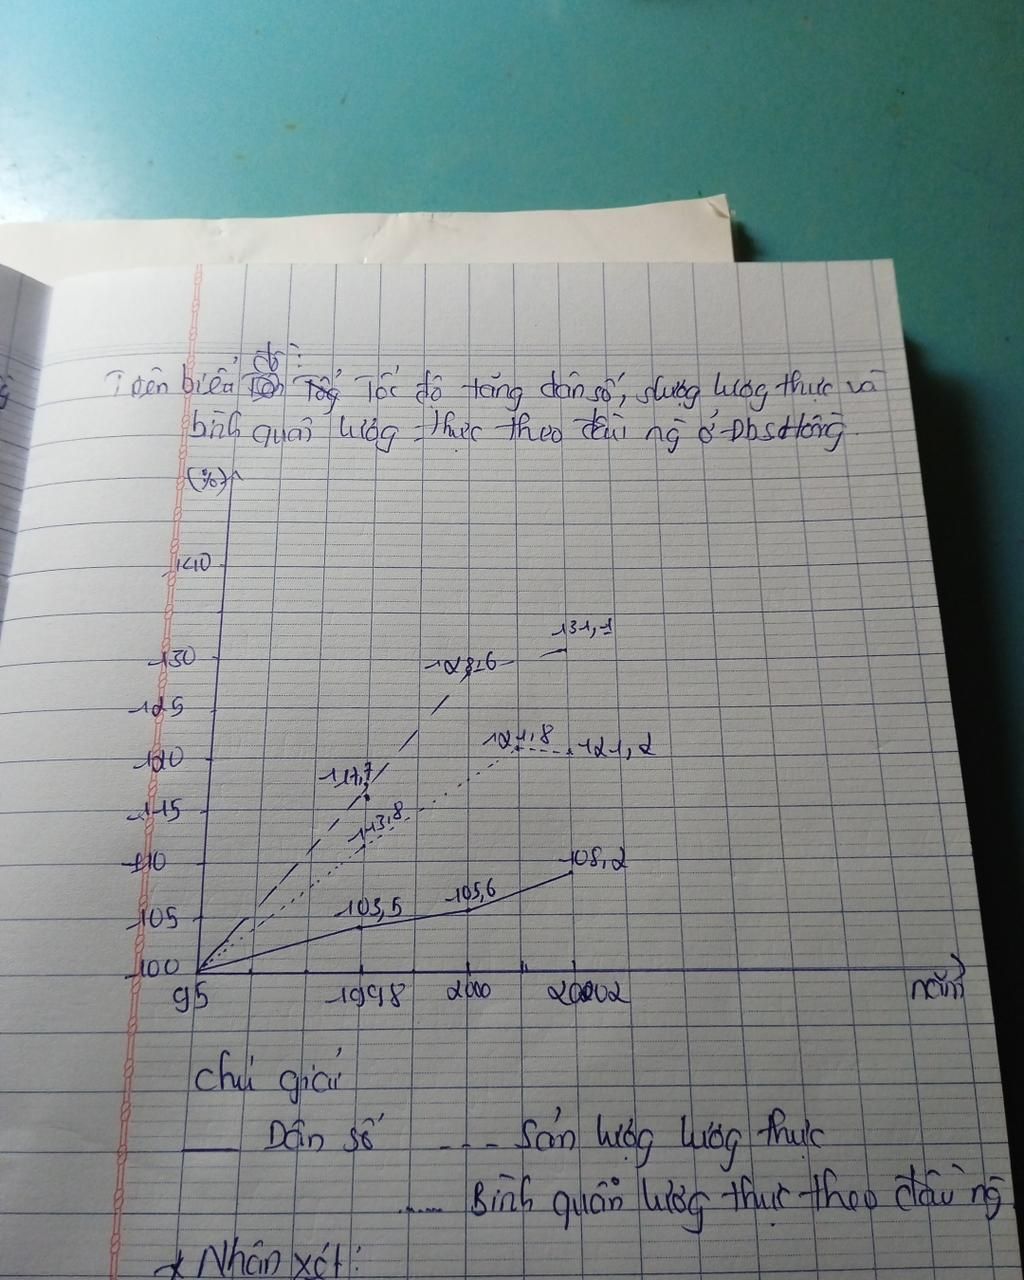 đồ:
Tên biểu Tốc độ tăng dân số, slượg lươg thực và
bìh quân lươg thực theo đầu ng ở Đbs Hồng
(%)
140
131,1
130
128,6
125
121,8
121,2
120
117,7
115
113,8
110
108,2
105,6
105
103,5
100
95
1998
2000
2002
năm
chú giải
Dân số
Sản lượg lươg thực
Bìh quân lươg thực theo đầu ng
* Nhận xét: